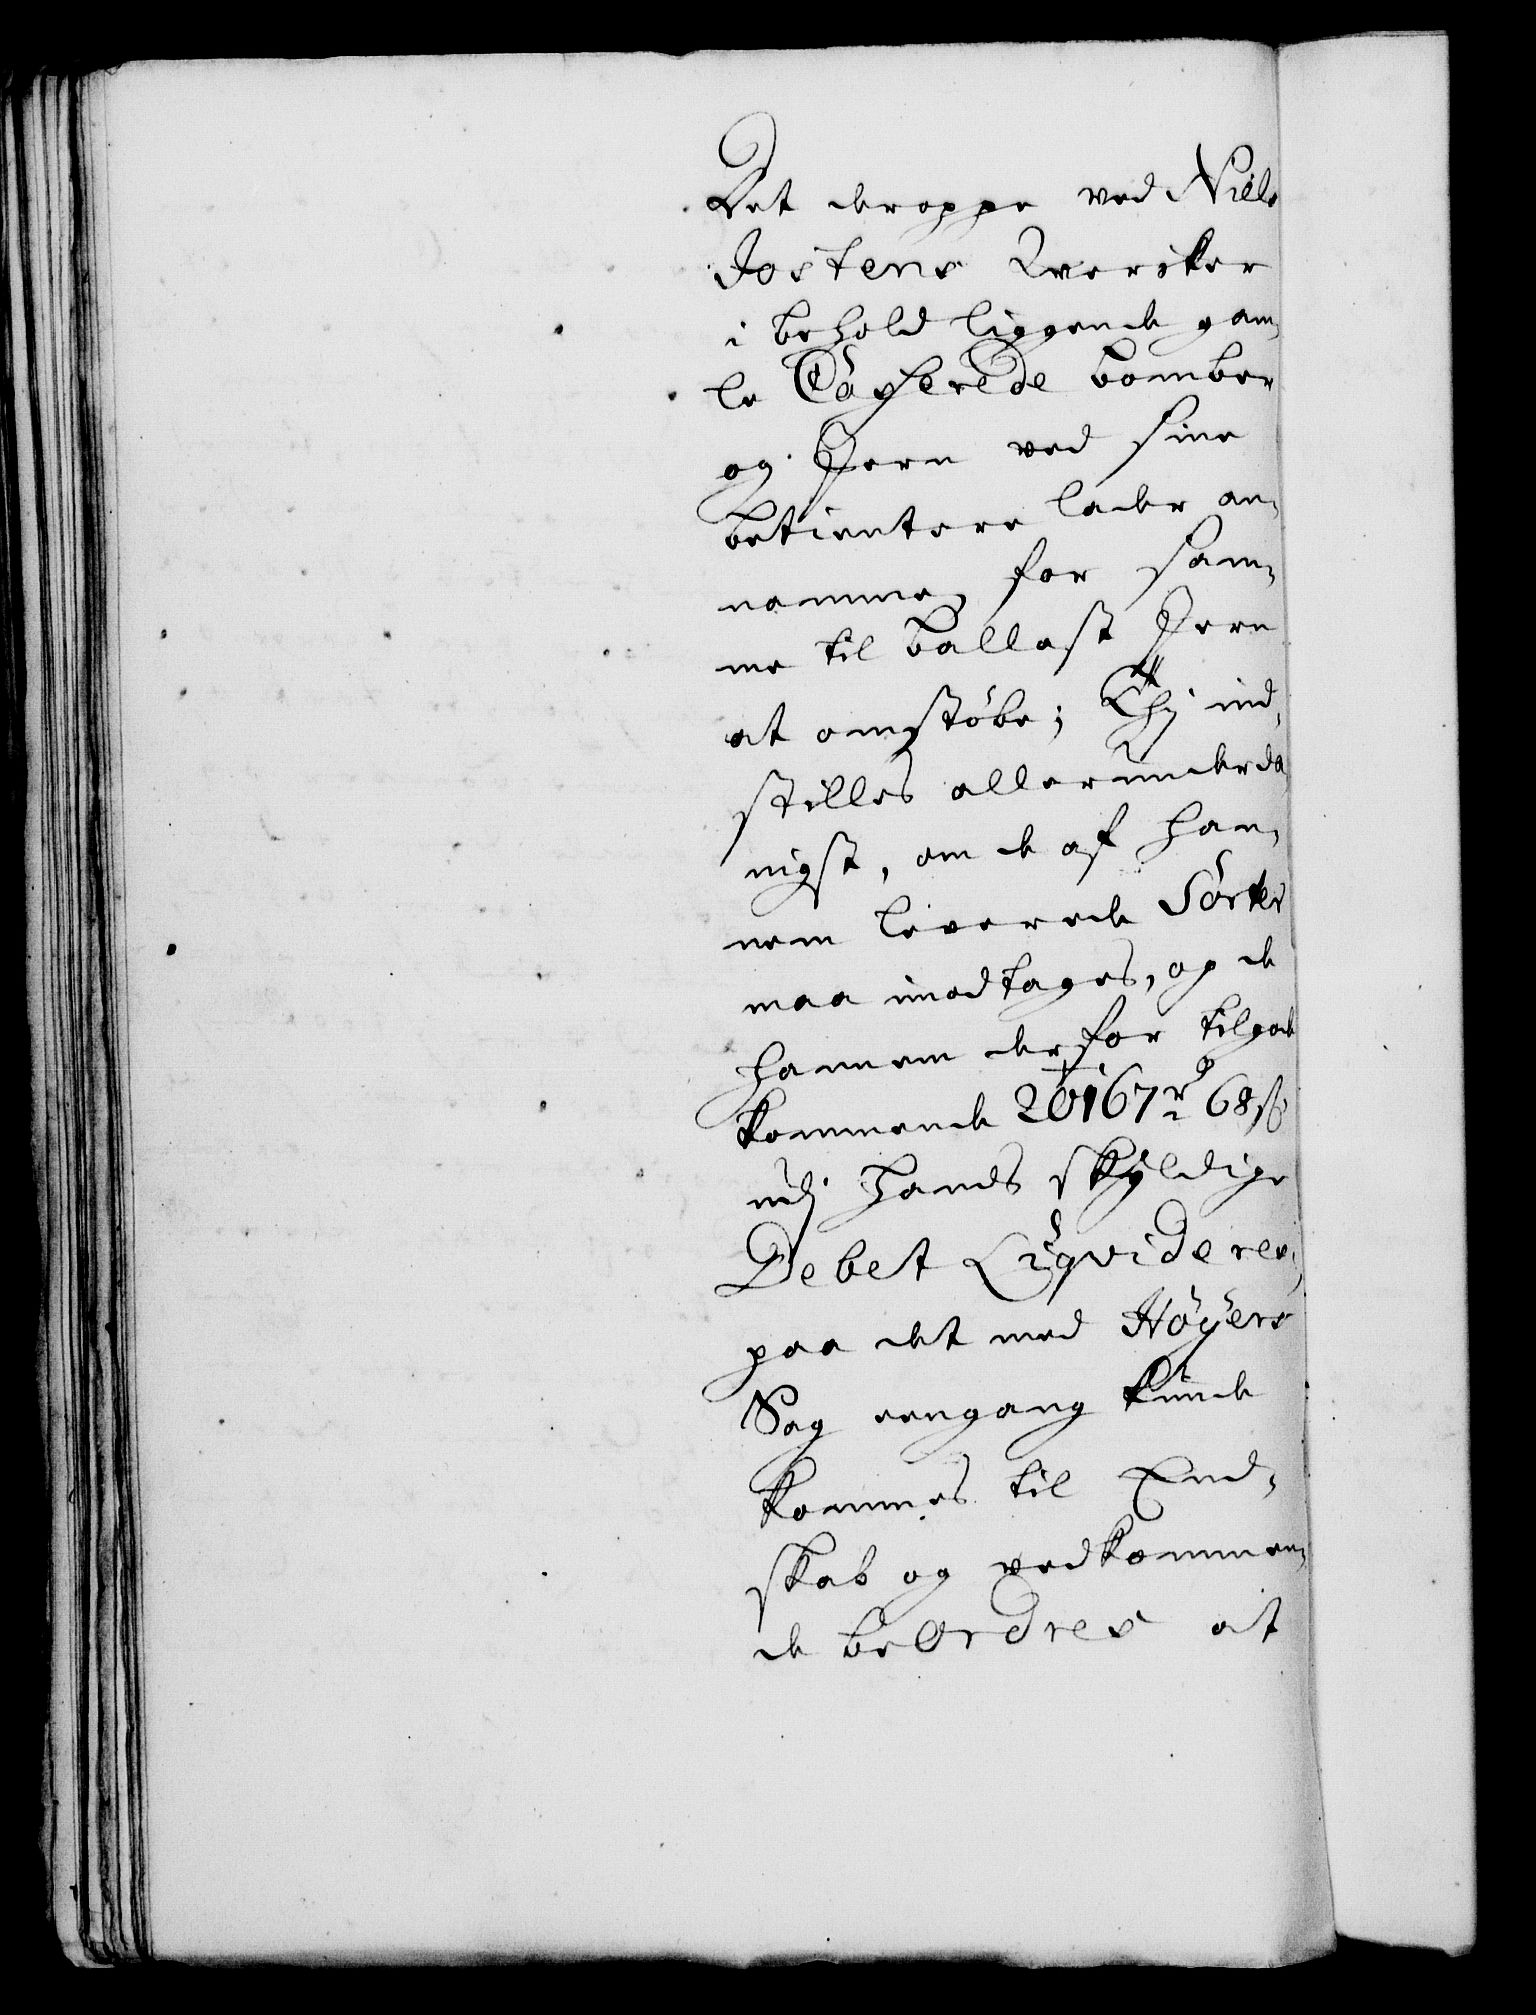 Det deroppe ved Niels
Jostens Qværcker
i behold liggende gam,
le Casserede bomber
og Jern ved sine
betientere lader an,
namme, for sam,
me til ballast Jern
at omstøbe; Thj ind,
stilles allerunderda
nigst, om de af han,
nem leverede Sorter
maa imodtages, og de
hannem derfor tilgode
kommende 20167 rd 68 sz
udj hands skyldige
Debet Liqvideres,
paa det med Høyers
Sag eengang kunde
kommes til End,
skab og vedkommen,
de beordres at